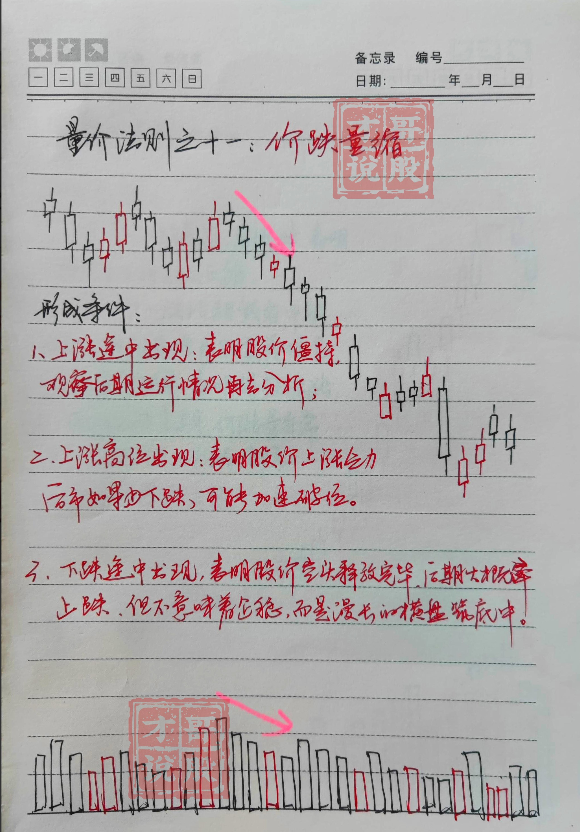 备忘录 编号
一 二 三 四 五 六 日
日期: 年 月 日
量价法则之十一：价跌量缩
才哥说股
形成条件：
1、上涨途中出现：表明股价僵持，
观察后期运行情况再去分析；
2、上涨高位出现：表明股价上涨乏力
后市如果出下跌、可能加速破位。
3、下跌途中出现，表明股价空头释放完毕，后期大概率
止跌、但不意味着企稳，而是漫长的横盘筑底中。
才哥说股